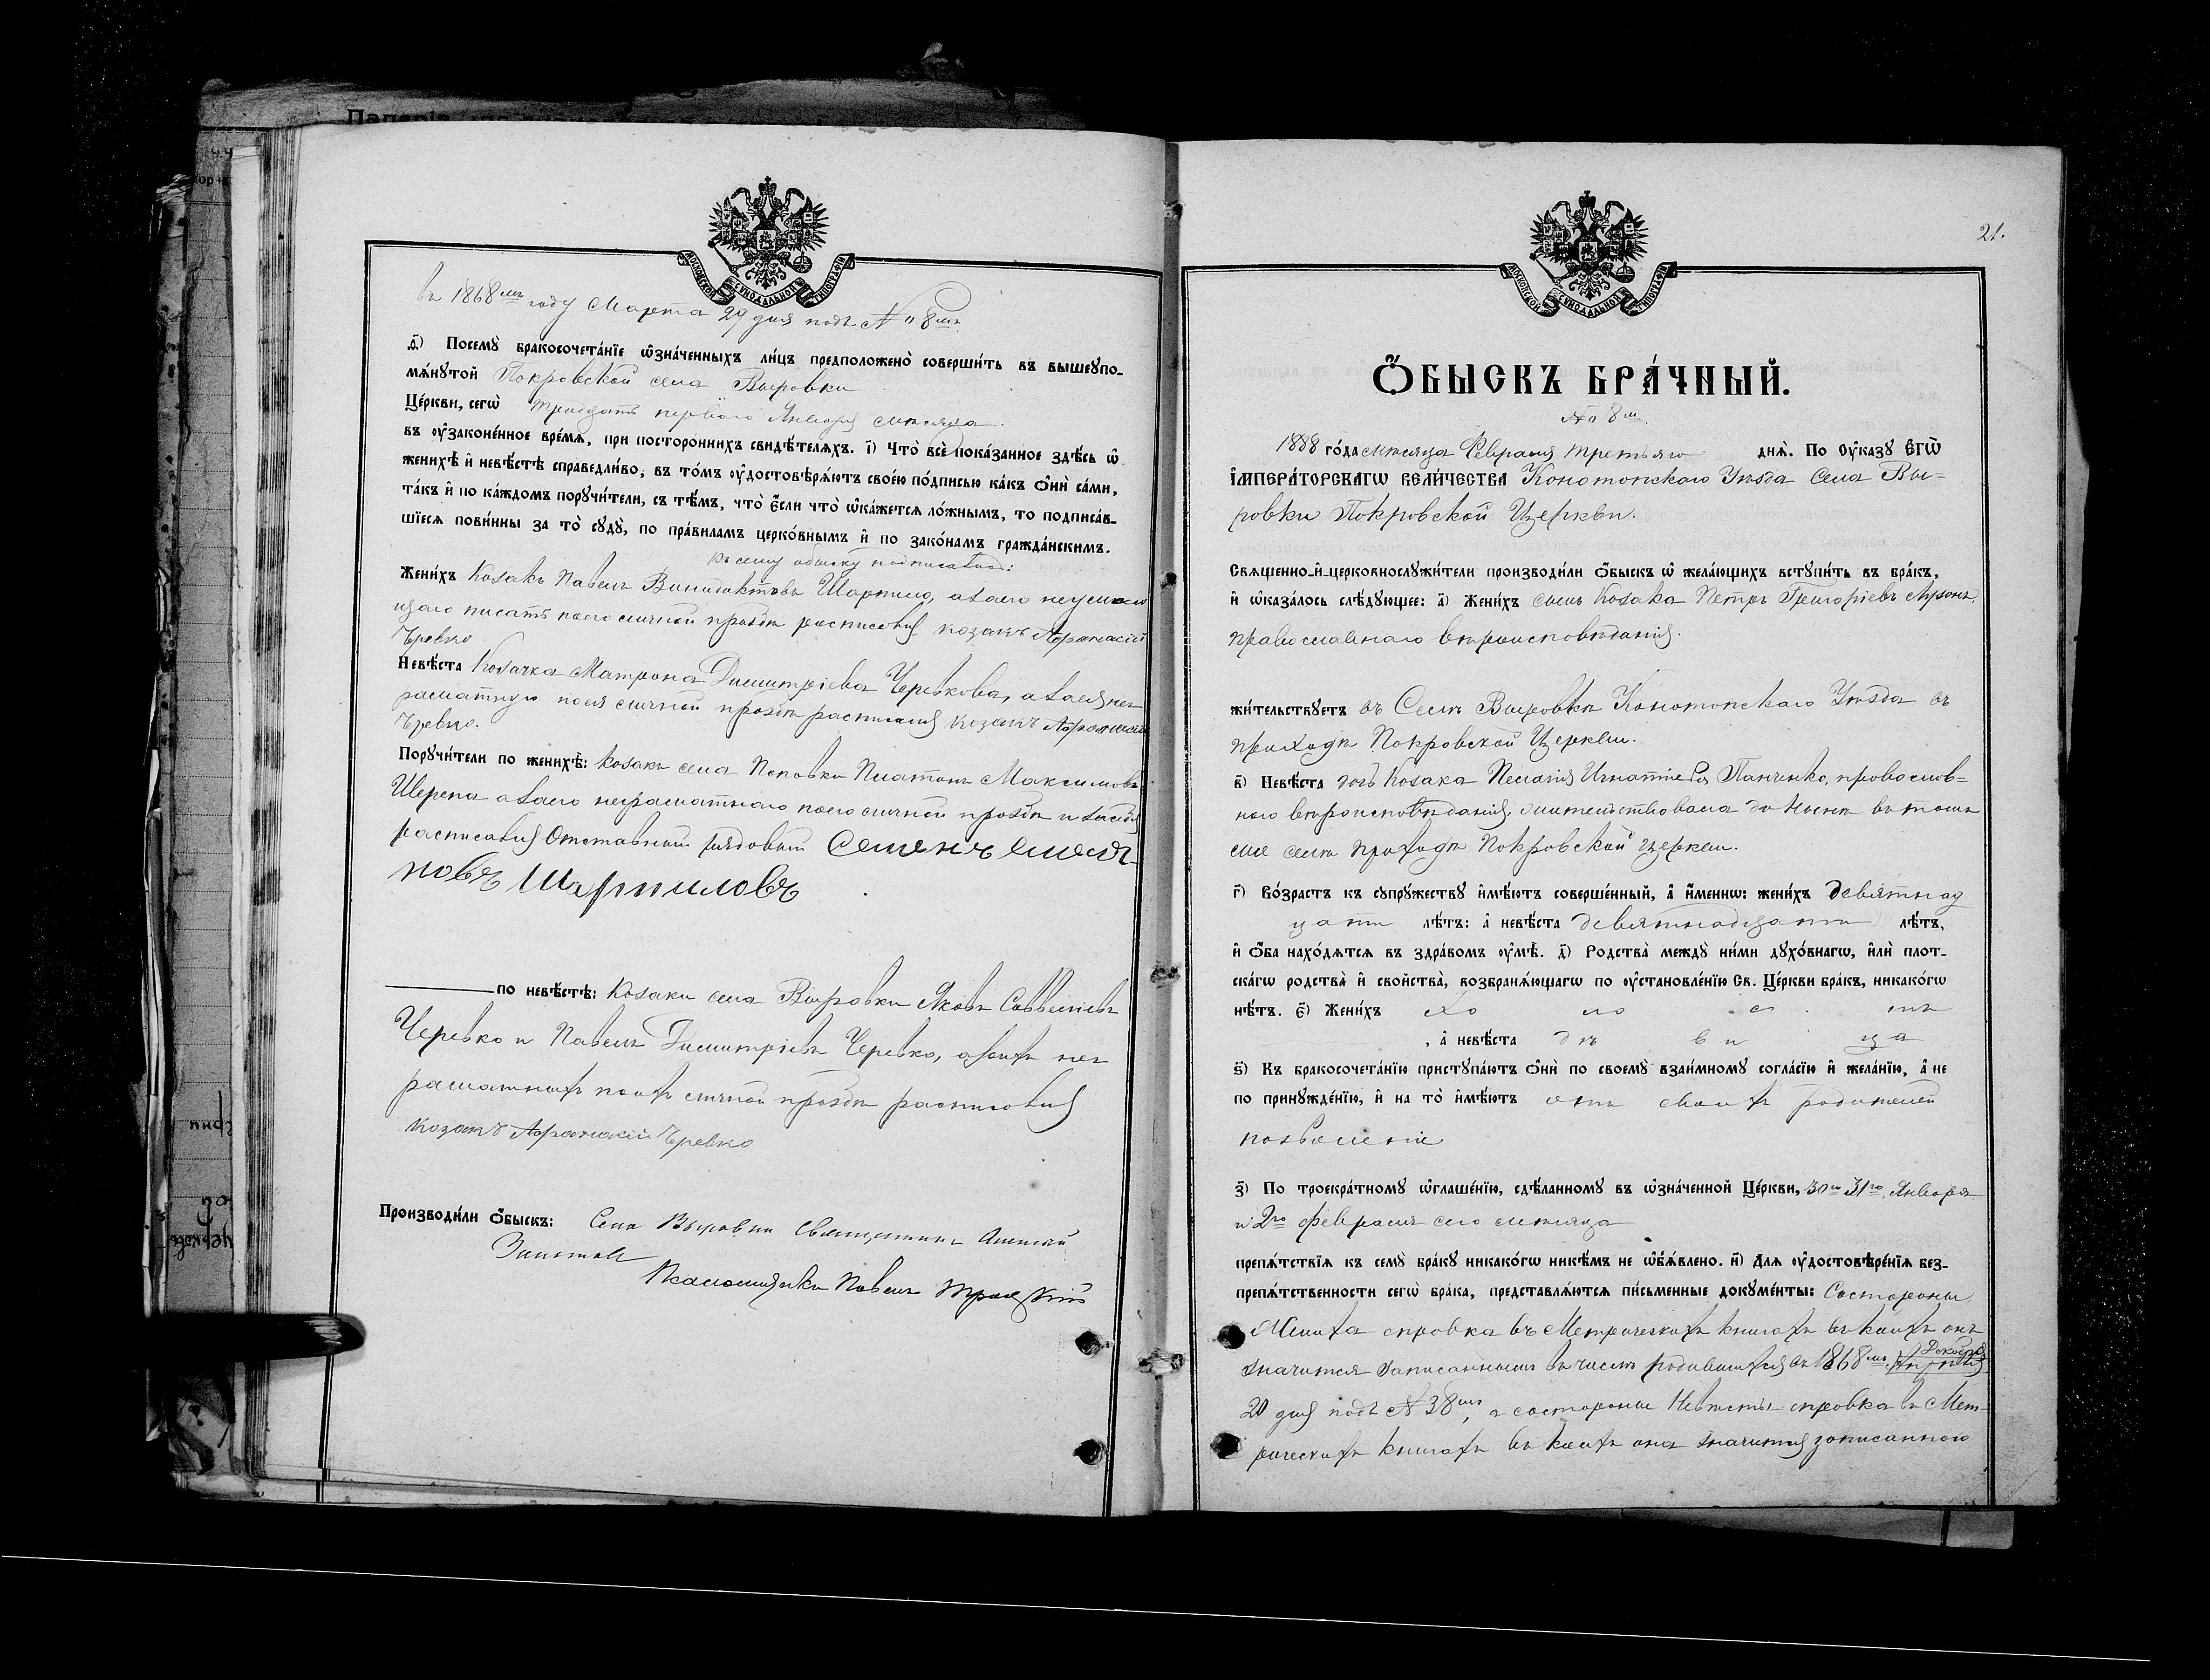 въ 1868мъ году Марта 29 дня подъ № 8мъ
д҃) Посемꙋ̀ бракосочета́нїе ѡ҆зна́ченныхъ ли́цъ предположено̀ соверши́ть въ вышеꙋпо-
мѧ́нꙋтой Покровской села Выровки
Це́ркви, сегѡ̀ тридцать перваго Января месяца
въ ᲂу҆законе́нное вре́мѧ, при посторо́ннихъ свидѣ́телѧхъ. і҃) Что̀ всѐ пока́занное здѣ́сь ѡ҆
женихѣ̀ и҆ невѣ́стѣ справедли́во, въ то́мъ ᲂу҆достовѣрѧ́ютъ свое́ю по́дписью ка́къ ѻ҆нѝ са́ми,
та́къ и҆ по ка́ждомъ порꙋчи́тели, съ тѣ́мъ, что̀ є҆́сли что̀ ѡ҆ка́жетсѧ ло́жнымъ, то подписа́в-
шїесѧ пови́нны за то̀ сꙋдꙋ̀, по пра́виламъ церко́внымъ и҆ по зако́намъ гражда́нскимъ.
Къ сему обыску подписались:
Жени́хъ Козакъ Павелъ Винидиктовъ Шарпило, а за его неумею
щаго писать по его личной прозбе росписался козакъ Афанасій
Чревко
Невѣ́ста Козачка Матрона Димитріева Черевкова, а за ея нег
раматную по ея личной прозбе расписался козакъ Афанасій
Чревко.
Порꙋчи́тели по женихѣ̀: козакъ села Поповки Платонъ Максимовъ
Шерепа а за его неграматнаго по его личной прозбе и за себя
расписался Отставный рядовый Семенъ
Шарпиловъ
по невѣ́стѣ: Козаки села Выровки Яковъ Савельевъ
Черевко и Павелъ Димитріевъ Черевко, а за ихъ нег
раматныхъ по ихъ личной прозбе расписовался
козакъ Афанасій Чревко
Производи́ли ѻ҆́быскъ: Села Выровки Священникъ
Псаломщикъ Павелъ
21.
Ѻ҆́БЫСКЪ БРА́ЧНЫЙ.
№ 8й
1888 го́да месяца Февраля третьяго днѧ̀. По ᲂу҆́казꙋ Є҆ГѠ̀
І҆МПЕРА́ТОРСКАГѠ ВЕЛИ́ЧЕСТВА Конотопскаго Уезда Села Вы-
ровки Покровской Церкви.
Свѧщенно-и҆-церковнослꙋжи́тели производи́ли ѻ҆́быскъ ѡ҆ жела́ющихъ встꙋпи́ть въ бра́къ,
и҆ ѡ҆каза́лось слѣ́дꙋющее: а҃) Жени́хъ сынъ Козака Петръ Григоріевъ
православнаго вероисповѣданія.
жи́тельствꙋетъ въ Селѣ Выровкѣ Конотопскаго Уѣзда въ
приходѣ Покровской Церкви.
в҃) Невѣ́ста дочь Козака Пелагія Игнатіева Панченко, провослов-
наго вѣроисповѣданія, жительствовала до нынѣ въ томъ
же селѣ приходѣ Покровской церкви.
г҃) Во́зрастъ къ сꙋпрꙋ́жествꙋ и҆мѣ́ютъ соверше́нный, а҆ и҆́меннѡ: жени́хъ девятнад
цати лѣ́тъ: а҆ невѣ́ста девятнадцати лѣ́тъ,
и҆ ѻ҆́ба нахо́дѧтсѧ въ здра́вомъ ᲂу҆мѣ̀. д҃) Родства̀ междꙋ̀ ни́ми дꙋхо́внагѡ, и҆лѝ плот-
ска́гѡ родства̀ и҆ сво́йства, возбранѧ́ющагѡ по ᲂу҆становле́нїю Св. Це́ркви бра́къ, никако́гѡ
нѣ́тъ. є҃) Жени́хъ хо ло с тъ
, а҆ невѣ́ста дѣ ви ца
ѕ҃) Къ бракосочета́нїю пристꙋпа́ютъ ѻ҆нѝ по своемꙋ̀ взаи́мномꙋ согла́сїю и҆ жела́нїю, а҆ не
по принꙋжде́нїю, и҆ на то̀ и҆мѣ́ютъ отъ своихъ родителей
позволеніе
з҃) По троекра́тномꙋ ѡ҆глаше́нїю, сдѣ́ланномꙋ въ ѡ҆зна́ченной Це́ркви, 30го 31го Января
и 2го февраля сего месяца
препѧ́тствїѧ къ семꙋ̀ бра́кꙋ никако́гѡ никѣ́мъ не ѡ҆б̾ѧ́влено. и҃) Длѧ ᲂу҆достовѣре́нїѧ без-
препѧ́тственности сегѡ̀ бра́ка, представлѧ́ютсѧ пи́сьменные докꙋме́нты: Состороны
Жениха справка въ Метрическихъ книгахъ въ коихъ онъ
значится записаннымъ въ числѣ родившихся въ 1868мъ Декабря
20 дня подъ № 38мъ, а состороны Невѣсты справка въ Мет-
рическихъ книгахъ въ коихъ она значится записанною